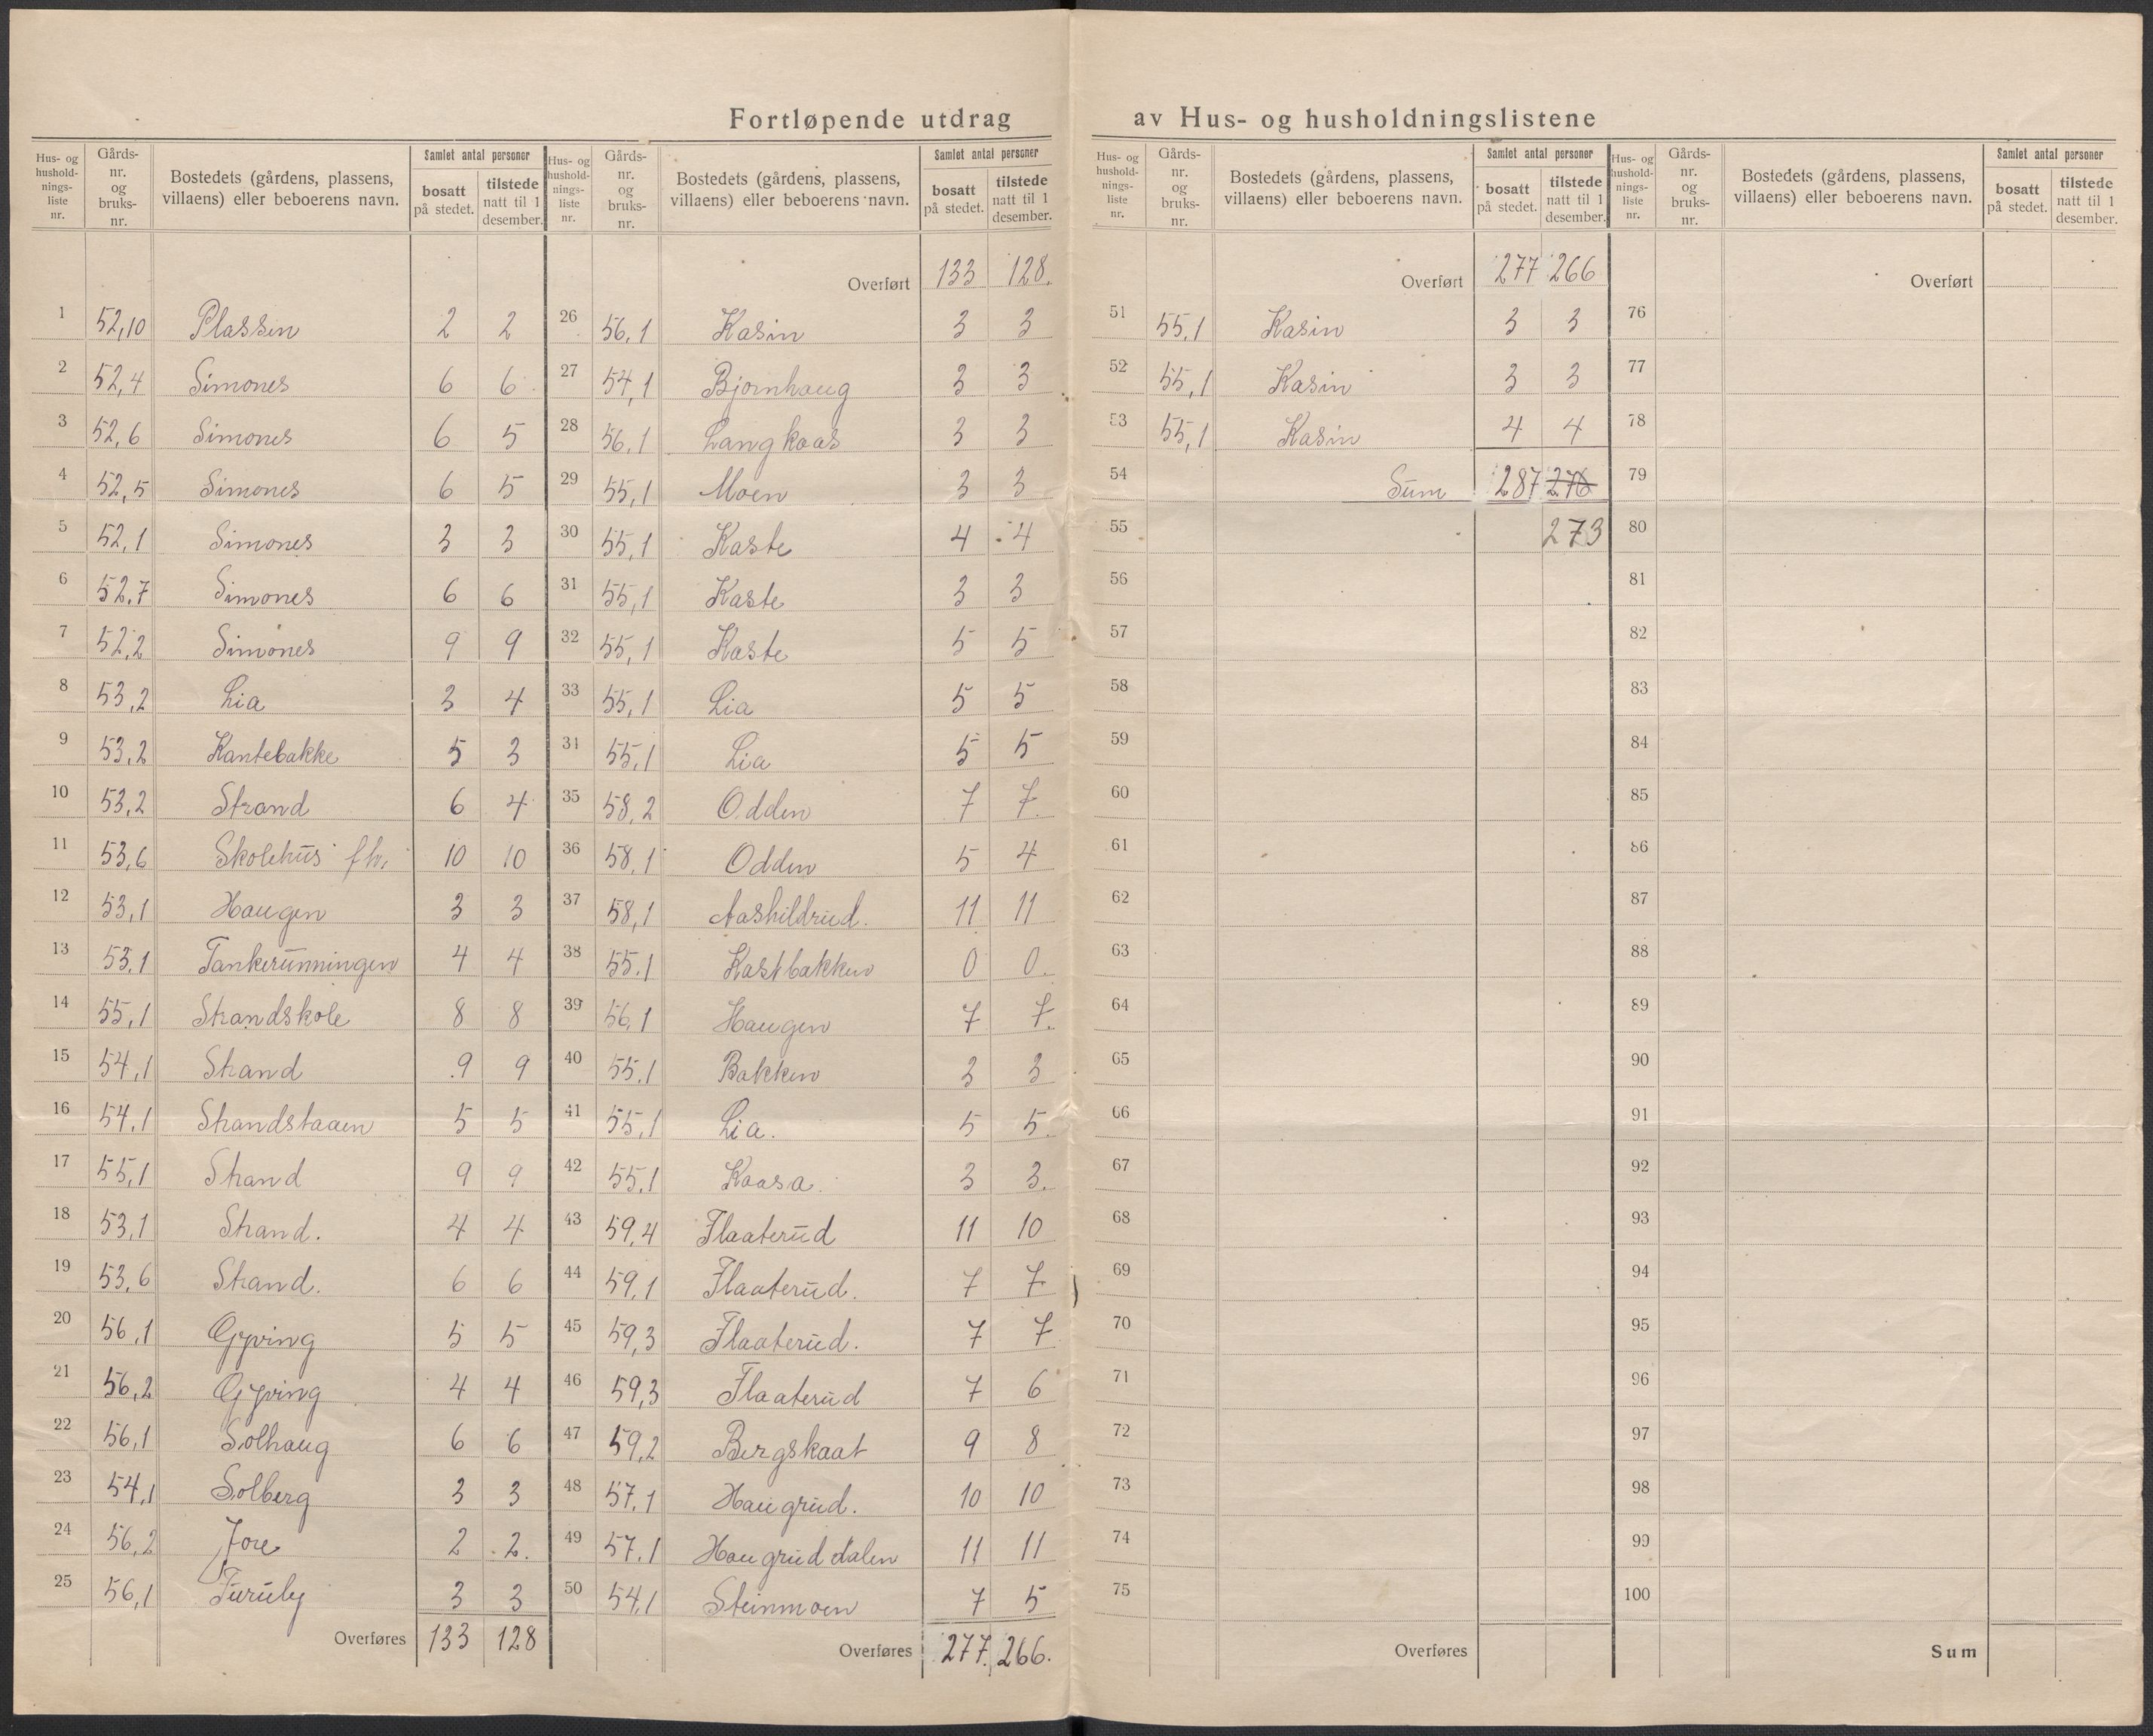 Fortløpende utdrag av Hus- og husholdningslistene
Hus- og hushold-nings-liste nr. Gårds-nr. og bruks-nr. Bostedets (gårdens, plassens, villaens) eller beboerens navn. Samlet antal personer bosatt på stedet. tilstede natt til 1 desember.
1 52,10 Plassen 2 2
2 52,4 Simones 6 6
3 52,6 Simones 6 5
4 52,5 Simones 6 5
5 52,1 Simones 3 3
6 52.7 Simones 6 6
7 52,2 Simones 9 9
8 53,2 Lia 3 4
9 53,2 Kantebakke 5 3
10 53,2 Strand 6 4
11 53,6 Skolehus fh. 10 10
12 53,1 Haugen 3 3
13 53,1 Tankerunningen 4 4
14 55,1 Strandskole 8 8
15 54,1 Strand 9 9
16 54,1 Strandstaaen 5 5
17 55,1 Strand 9 9
18 53,1 Strand. 4 4
19 53,6 Strand. 6 6
20 56,1 Gyving 5 5
21 56,2 Gyving 4 4
22 56,1 Solhaug 6 6
23 54,1 Solberg 3 3
24 56,2 Jore 2 2.
25 56,1 Furuly 3 3
Overføres 133 128
Hus- og hushold-nings-liste nr. Gårds-nr. og bruks-nr. Bostedets (gårdens, plassens, villaens) eller beboerens navn. Samlet antal personer bosatt på stedet. tilstede natt til 1 desember.
Overført 133 128.
26 56,1 Kasin 3 3
27 54,1 Bjørnhaug 3 3
28 56,1 Langkaas 3 3
29 55,1 Moen 3 3
30 55,1 Kaste 4 4
31 55,1 Kaste 3 3
32 55,1 Kaste 5 5
33 55,1 Lia 5 5
34 55,1 Lia 5 5
35 58,2 Odden 7 7.
36 58,1 Odden 5 4
37 58,1 Aashildrud. 11 11
38 55.1 Kastbakken 0 0.
39 56,1 Haugen 7 7.
40 55.1 Bakken 3 3
41 55,1 Lia. 5 5.
42 55,1 Kaasa. 3 3.
43 59,4 Flaaterud 11 10
44 59,1 Flaaterud. 7 7
45 59,3 Flaaterud. 7 7
46 59,3 Flaaterud 7 6
47 59,2 Bergskaat 9 8
48 57,1 Haugrud. 10 10
49 57.1 Haugruddalen 11 11
50 54,1 Steinmoen 7 5
Overføres 277. 266.
Hus- og hushold-nings-liste nr. Gårds-nr. og bruks-nr. Bostedets (gårdens, plassens, villaens) eller beboerens navn. Samlet antal personer bosatt på stedet. tilstede natt til 1 desember.
Overført 277 266
51 55,1 Kasin 3 3
52 55,1 Kasin 3 3
53 55,1 Kasin 4 4
54 Sum 287 276
55 273
56
57
58
59
60
61
62
63
64
65
66
67
68
69
70
71
72
73
74
75
Overføres
Hus- og hushold-nings-liste nr. Gårds-nr. og bruks-nr. Bostedets (gårdens, plassens, villaens) eller beboerens navn. Samlet antal personer bosatt på stedet. tilstede natt til 1 desember.
Overført
76
77
78
79
80
81
82
83
84
85
86
87
88
89
90
91
92
93
94
95
96
97
98
99
100
Sum